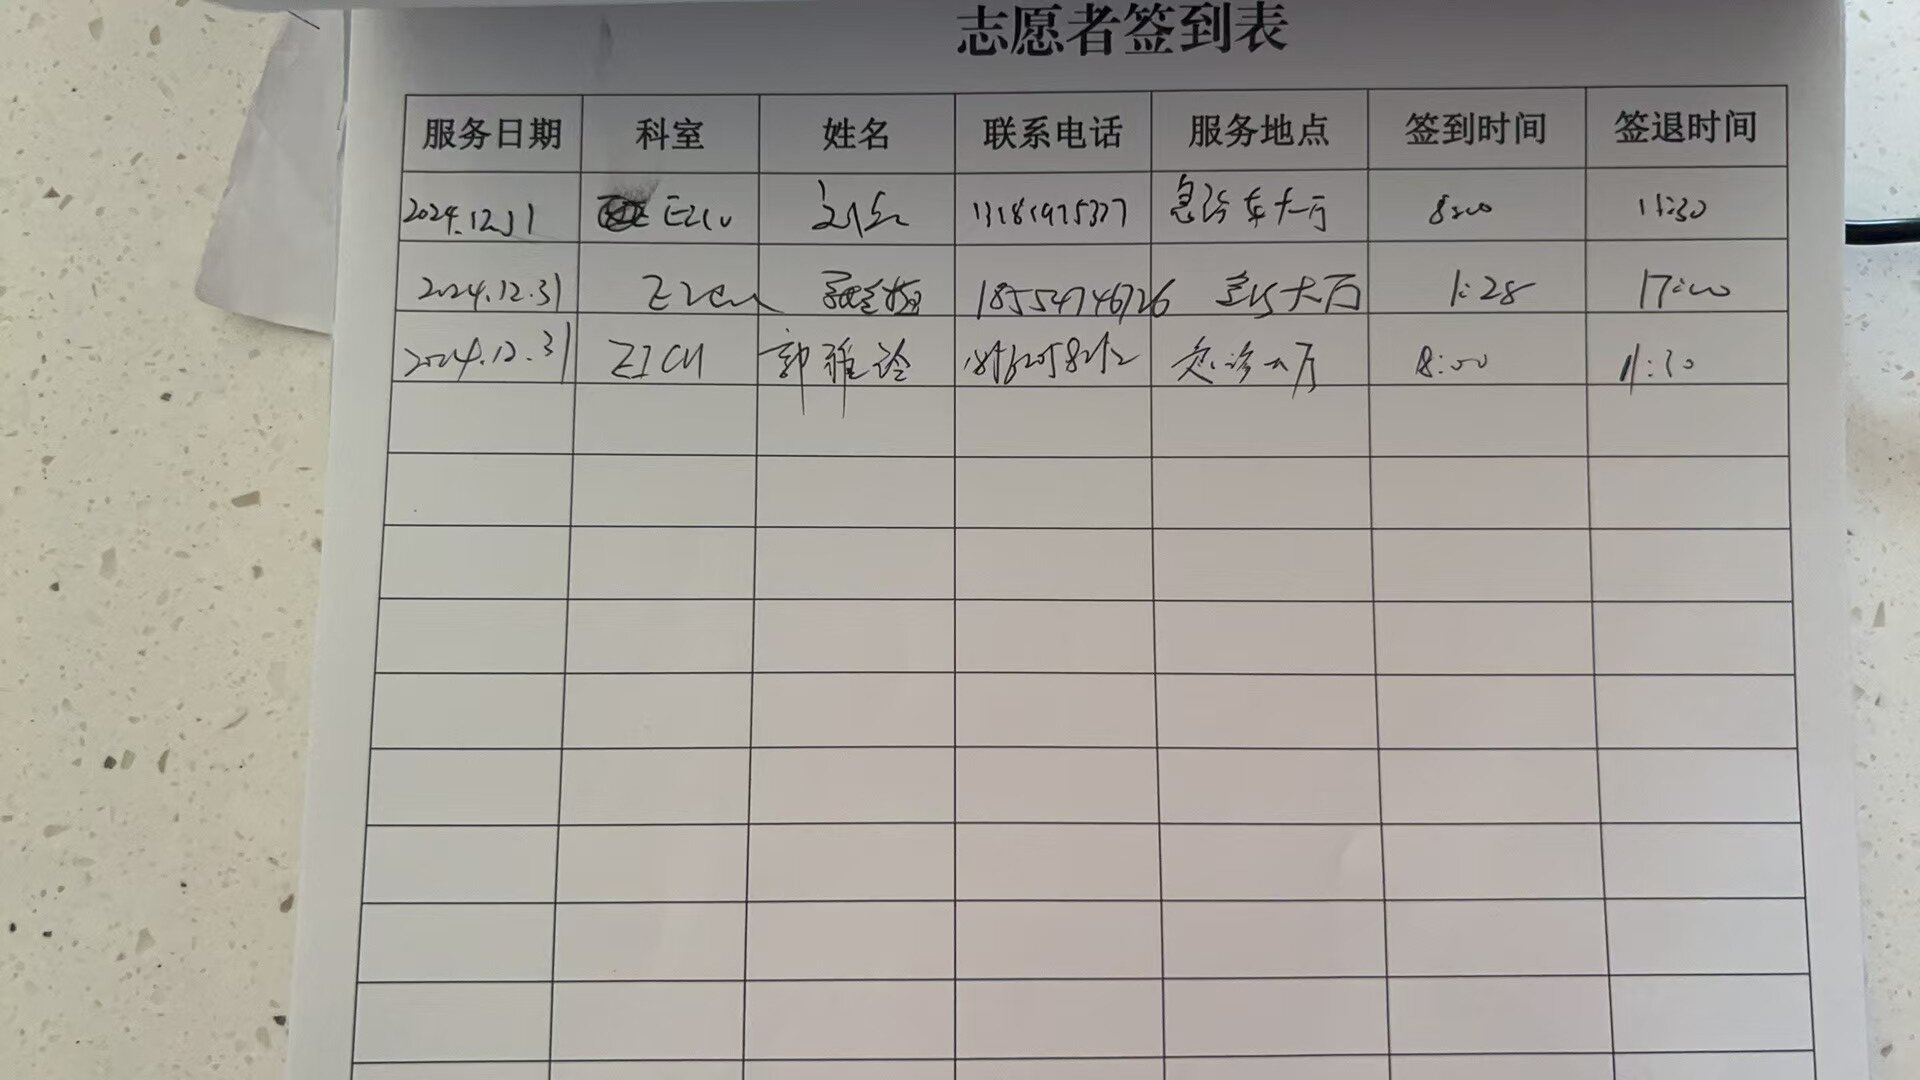 志愿者签到表
服务日期 科室 姓名 联系电话 服务地点 签到时间 签退时间
2024.12.31 EICU 13181975327 急诊 大厅 8:00 11:30
2024.12.31 EICU 18554746726 急诊大厅 1:28 17:00
2024.12.31 EICU 郭雅 急诊大厅 8:00 11:30